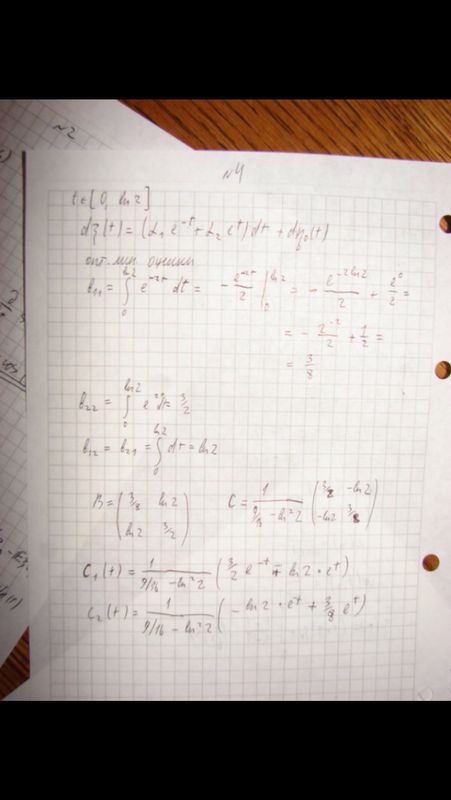 №2
№4
t∈[0, ln2]
dξ(t) = (α₁e⁻ᵗ + α₂eᵗ)dt + dη₀(t)
опт. лин. оценки
b₁₁ = ∫₀^{ln2} e^{-2t} dt = - e^{-2t}/2 |₀^{ln2} = - e^{-2ln2}/2 + e⁰/2 =
= - 2⁻²/2 + 1/2 =
= 3/8
b₂₂ = ∫₀^{ln2} e^{2t} dt = 3/2
b₁₂ = b₂₁ = ∫₀^{ln2} dt = ln2
B = (3/8 ln2; ln2 3/2) C = 1/(9/16 - ln²2) (3/2 -ln2; -ln2 3/8)
C₁(t) = 1/(9/16 - ln²2) (3/2 e⁻ᵗ - ln2 · eᵗ)
C₂(t) = 1/(9/16 - ln²2) (- ln2 · eᵗ + 3/8 eᵗ)